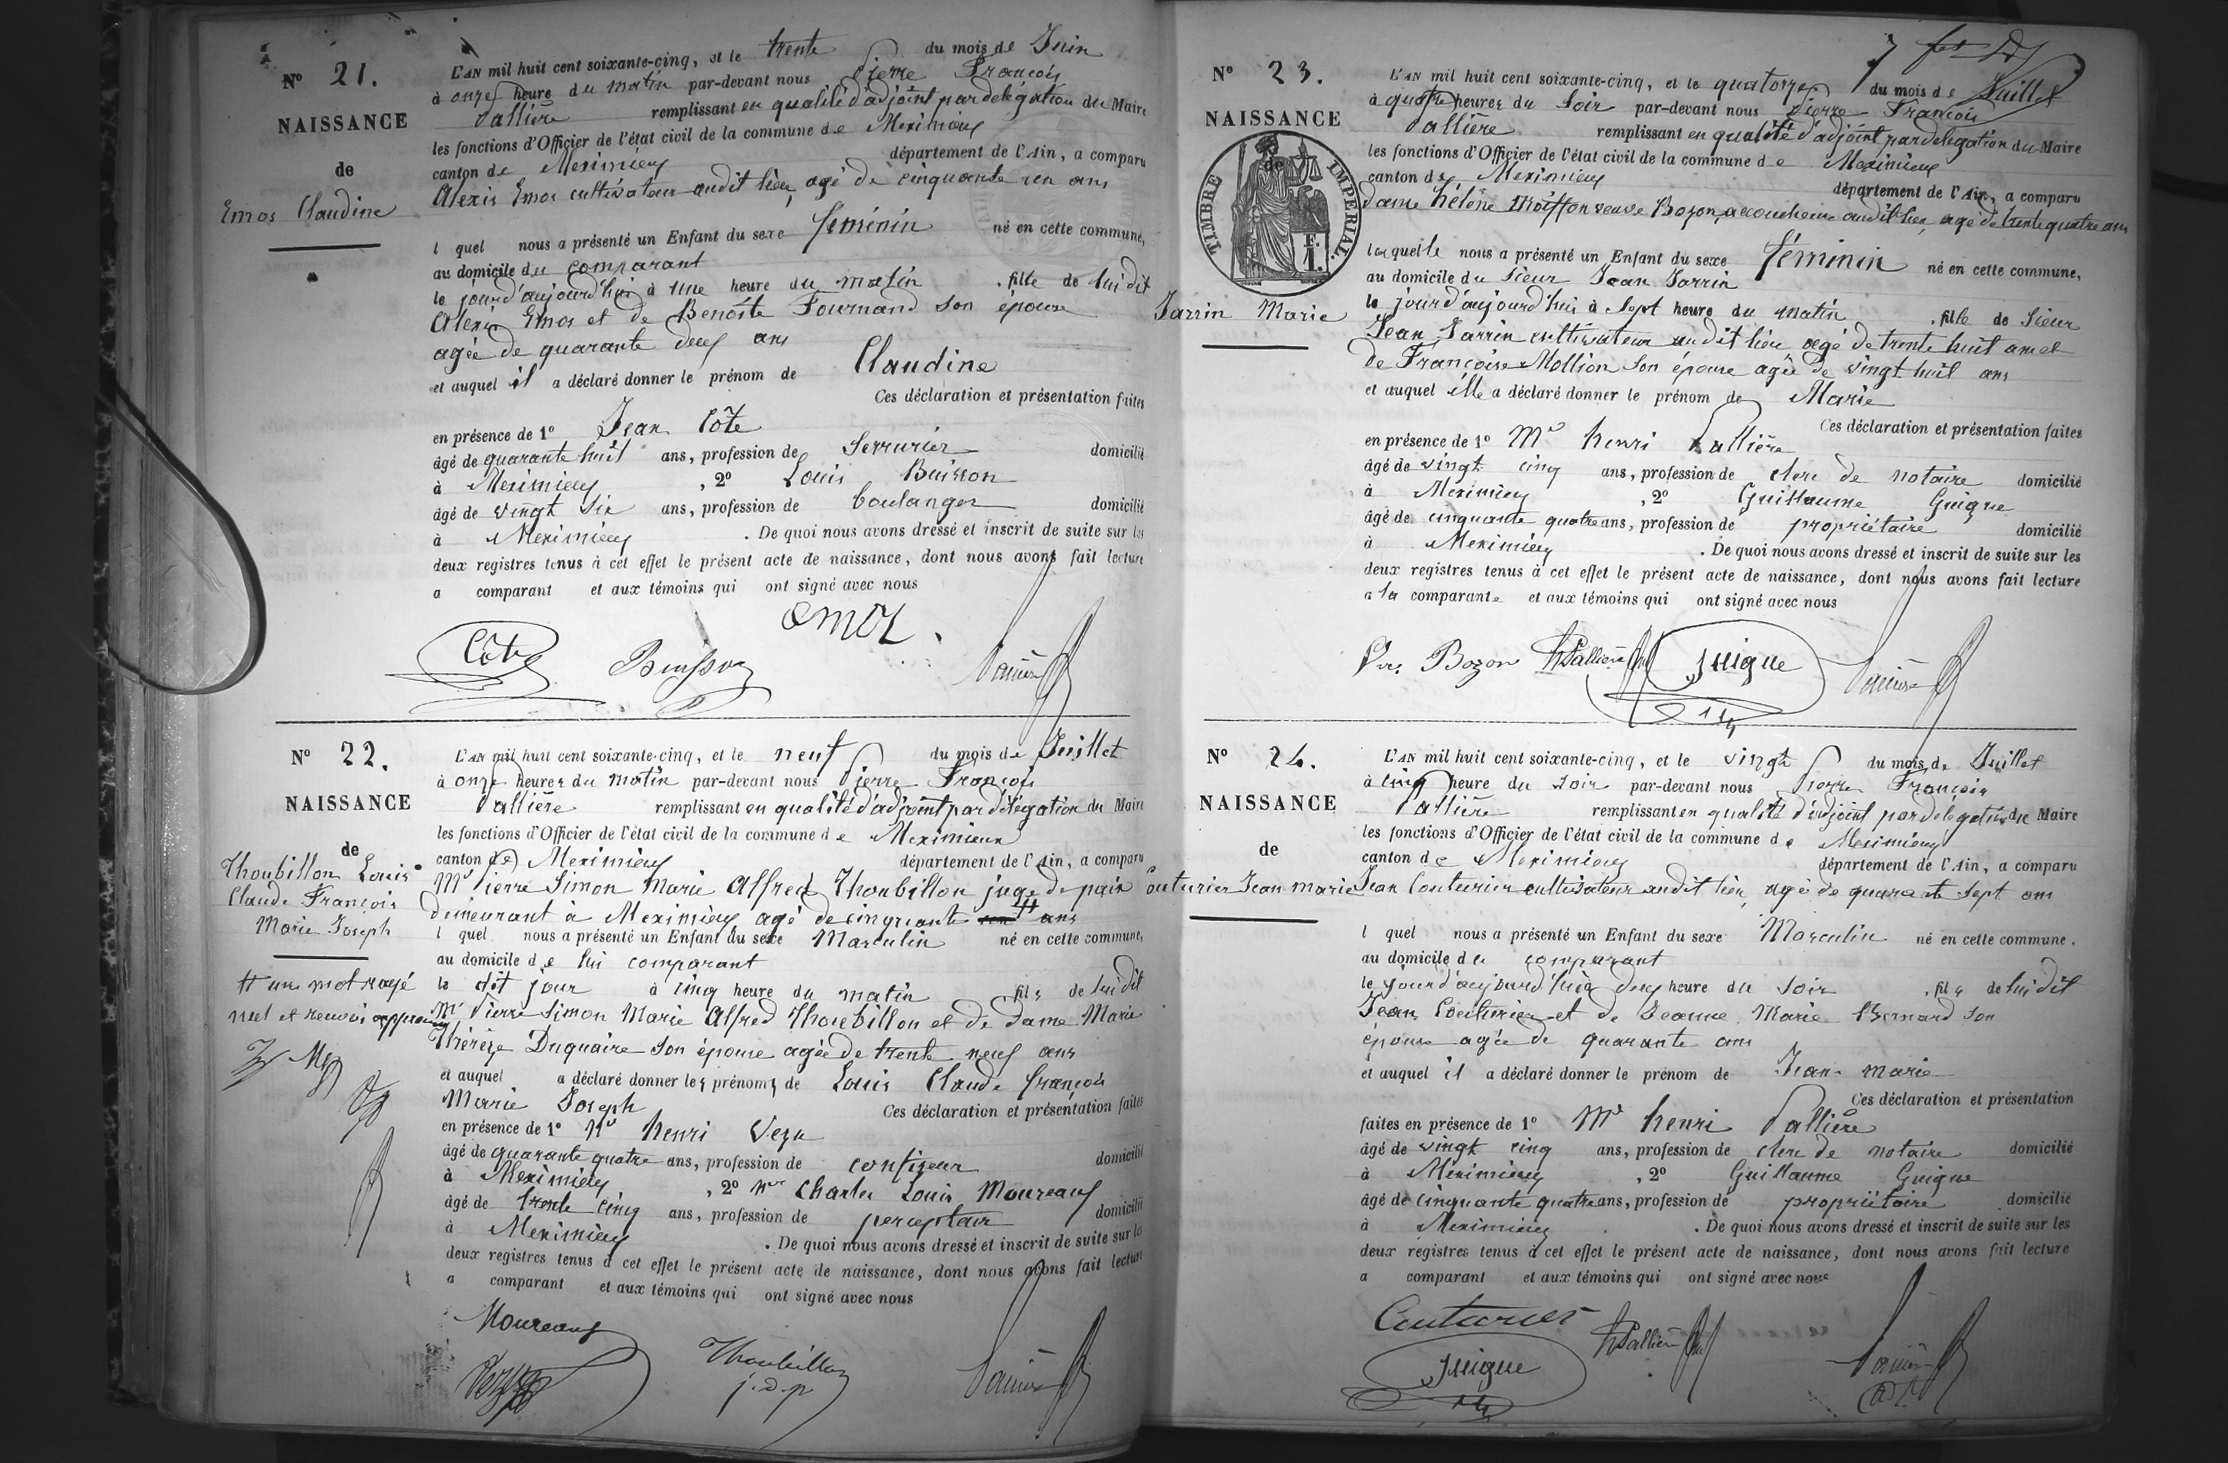 N° 21.
NAISSANCE
de
Emos Claudine
L'AN mil huit cent soixante-cinq, et le trente du mois de Juin
à onze heure du matin par-devant nous Pierre François
Pallière remplissant en qualité d'adjoint par délégation du Maire
les fonctions d'Officier de l'état civil de la commune de Meximieux
canton de Meximieux département de l'Ain, a comparu
Alexis Emos cultivateur audit lieu, agé de cinquante un ans
l quel nous a présenté un Enfant du sexe féminin né en cette commune,
au domicile du comparant
le jour d'aujourd'hui à une heure du matin , fille de lui dit
Alexis Emos et de Benoîte Fournand son épouse
agée de quarante deux ans
et auquel il a déclaré donner le prénom de Claudine
Ces déclaration et présentation faites
en présence de 1° Jean Côte
âgé de quarante huit ans, profession de Serrurier domicilié
à Meximieux , 2° Louis Buisson
âgé de vingt six ans, profession de boulanger domicilié
à Meximieux . De quoi nous avons dressé et inscrit de suite sur les
deux registres tenus à cet effet le présent acte de naissance, dont nous avons fait lecture
a comparant et aux témoins qui ont signé avec nous
emos
Côte Buisson Pallière
N° 22.
NAISSANCE
de
Thoubillon Louis
Claude François
Marie Joseph
H un mot rayé
nul et renvoi approuvé
L'AN mil huit cent soixante-cinq, et le neuf du mois de Juillet
à onze heures du matin par-devant nous Pierre François
Pallière remplissant en qualité d'adjoint par délégation du Maire
les fonctions d'Officier de l'état civil de la commune de Meximieux
canton de Meximieux département de l'Ain, a comparu
Mr Pierre Simon Marie Alfred Thoubillon juge de paix
demeurant à Meximieux agé de cinquante H ans
l quel nous a présenté un Enfant du sexe Masculin né en cette commune,
au domicile de lui comparant
le dit jour à cinq heure du matin , fils de lui dit
Mr Pierre Simon Marie Alfred Thoubillon et de dame Marie
Thérèze Duquaire son épouse agée de trente neuf ans
et auquel a déclaré donner les prénoms de Louis Claude françois
Marie Joseph Ces déclaration et présentation faites
en présence de 1° Mr henri Vezu
âgé de quarante quatre ans, profession de confiseur domicilié
à Meximieux , 2° Mr Charles Louis Moureaux
âgé de trente cinq ans, profession de percepteur domicilié
à Meximieux . De quoi nous avons dressé et inscrit de suite sur les
deux registres tenus à cet effet le présent acte de naissance, dont nous avons fait lecture
a comparant et aux témoins qui ont signé avec nous
Moureaux
Vezu Thoubillon Pallière
j.d.p
N° 23.
NAISSANCE
de
TIMBRE IMPERIAL.
F.
1.
Jarrin Marie
L'AN mil huit cent soixante-cinq, et le quatorze du mois de Juillet
à quatre heures du soir par-devant nous Pierre François
Pallière remplissant en qualité d'adjoint par délégation du Maire
les fonctions d'Officier de l'état civil de la commune de Meximieux
canton de Meximieux département de l'Ain, a comparu
dame hélène Moiffon veuve Bozon, accoucheuse audit lieu, agé de trente quatre ans
laquelle nous a présenté un Enfant du sexe féminin né en cette commune,
au domicile du sieur Jean Jarrin
le jour d'aujourd'hui à Sept heure du matin , fille de sieur
Jean Jarrin cultivateur audit lieu agé de trente huit ans et
de Françoise Mollion son épouse agée de vingt huit ans
et auquel elle a déclaré donner le prénom de Marie
Ces déclaration et présentation faites
en présence de 1° Mr henri Pallière
âgé de vingt cinq ans, profession de clerc de notaire domicilié
à Meximieux , 2° Guillaume Guigue
âgé de cinquante quatre ans, profession de propriétaire domicilié
à Meximieux . De quoi nous avons dressé et inscrit de suite sur les
deux registres tenus à cet effet le présent acte de naissance, dont nous avons fait lecture
a la comparante et aux témoins qui ont signé avec nous
Bozon hPallière Guigue Pallière
N° 24.
NAISSANCE
de
Couturier Jean marie
L'AN mil huit cent soixante-cinq, et le vingt du mois de Juillet
à cinq heure du soir par-devant nous Pierre François
Pallière remplissant en qualité d'adjoint par délégation du Maire
les fonctions d'Officier de l'état civil de la commune de Meximieux
canton de Meximieux département de l'Ain, a comparu
Jean Couturier cultivateur audit lieu, agé de quarante sept ans
l quel nous a présenté un Enfant du sexe Masculin né en cette commune,
au domicile du comparant
le jour d'aujourd'hui à deux heure du soir , fils de lui dit
Jean Couturier et de Jeanne Marie Bernard son
épouse agée de quarante ans
et auquel il a déclaré donner le prénom de Jean marie
Ces déclaration et présentation
faites en présence de 1° Mr henri Pallière
âgé de vingt cinq ans, profession de clerc de notaire domicilié
à Meximieux , 2° Guillaume Guigue
âgé de cinquante quatre ans, profession de propriétaire domicilié
à Meximieux . De quoi nous avons dressé et inscrit de suite sur les
deux registres tenus à cet effet le présent acte de naissance, dont nous avons fait lecture
a comparant et aux témoins qui ont signé avec nous
Couturier hPallière Pallière
Guigue